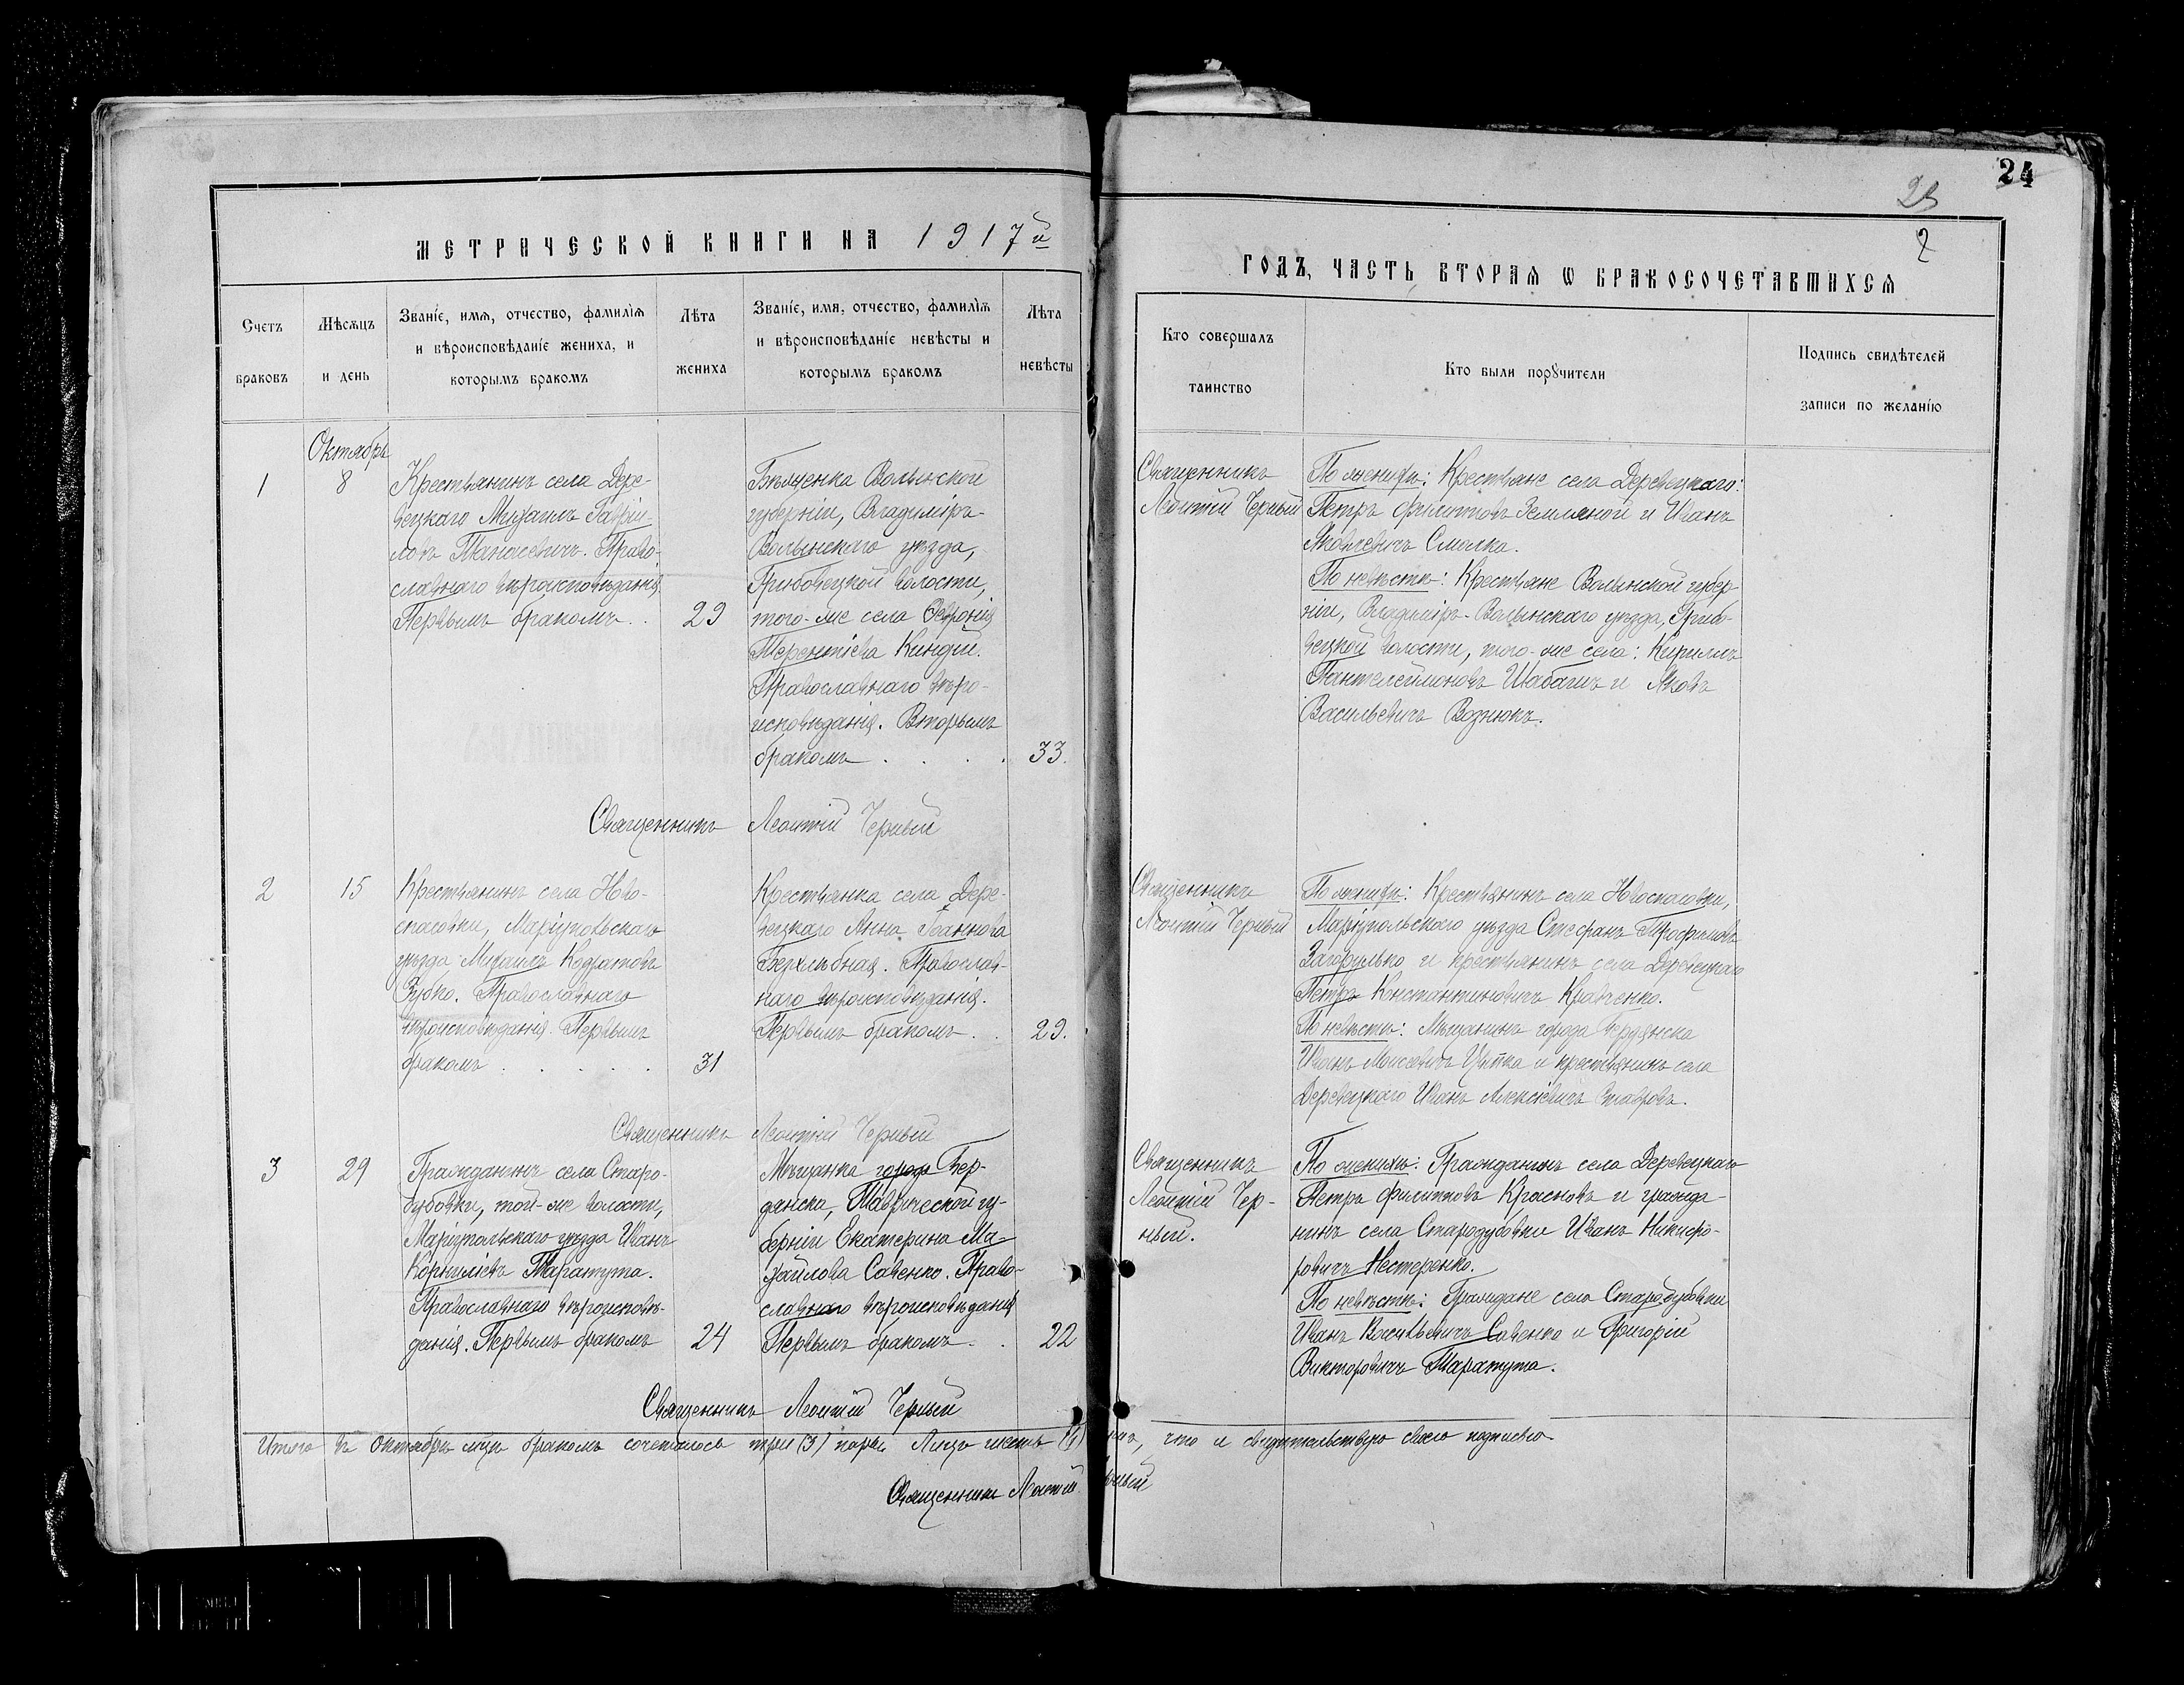 24
2
МЕТРИЧЕСКОЙ КНИГИ НА 1917й
ГОДЪ, ЧАСТЬ ВТОРАѦ Ѡ БРАКОСОЧЕТАВШИХСѦ
Счетъ браковъ
Мѣсѧцъ и день
Званіе, имѧ, отчество, фамиліѧ
и вѣроисповѣданіе жениха, и
которымъ бракомъ
Лѣта жениха
Званіе, имѧ, отчество, фамиліѧ
и вѣроисповѣданіе невѣсты и
которымъ бракомъ
Лѣта невѣсты
Кто совершалъ
таинство
Кто были порꙋчители
Подпись свидѣтелей
записи по желанію
Октябрь
1
8
Крестьянинъ села Дере-
вецкаго Михаилъ Гаврiи-
ловъ Танасевичъ. Право-
славнаго вѣроисповѣданія.
Первымъ бракомъ . .
29
Бѣженка Волынской
губерніи, Владиміръ-
Волынскаго уѣзда,
Грибовецкой волости,
того-же села Февронія
Терентіева Киндій.
Православнаго вѣро-
исповѣданія. Вторымъ
бракомъ . . . .
33.
Священникъ
Леонтій Черный
По женихѣ: Крестьяне села Деревецкаго:
Петръ Филипповъ Земляной и Иванъ
Яковлевичъ Смалка.
По невѣстѣ: Крестьяне Волынской губер-
ніи, Владиміръ-Волынскаго уѣзда, Грибо-
вецкой волости, того-же села: Кириллъ
Пантелеймоновъ Шабатъ и Яковъ
Васильевичъ Вознюкъ.
Священникъ Леонтій Черный
2
15
Крестьянинъ села Ново-
спасовки, Маріупольскаго
уѣзда Михаилъ Кодратовъ
Зубко. Православнаго
вѣроисповѣданія. Первымъ
бракомъ . . . . .
31
Крестьянка села Дере-
вецкаго Анна Іоаннова
Безхлѣбная. Православ-
наго вѣроисповѣданія.
Первымъ бракомъ . .
29.
Священникъ
Леонтій Черный
По женихѣ: Крестьянинъ села Новоспасовки,
Маріупольскаго уѣзда Стефанъ Трофимовъ
Загорулько и крестьянинъ села Деревецкаго
Петръ Константиновичъ Кравченко.
По невѣстѣ: Мѣщанинъ города Бердянска
Иванъ Моисеевичъ и крестьянинъ села
Деревецкаго Иванъ Алексіевичъ Ставровъ.
Священникъ Леонтій Черный
3
29
Гражданинъ села Старо-
дубовки, той-же волости,
Маріупольскаго уѣзда Иванъ
Корниліевъ Таратута.
Православнаго вѣроисповѣ-
данія. Первымъ бракомъ
24
Мѣщанка города Бер-
дянска, Таврической гу-
берніи Екатерина Ми-
хайлова Савенко. Право-
славнаго вѣроисповѣданія
Первымъ бракомъ . .
22
Священникъ
Леонтій Чер-
ный.
По женихѣ: Гражданинъ села Деревецкаго
Петръ Филипповъ Красновъ и гражда-
нинъ села Стародубовки Иванъ Никифо-
ровичъ Нестеренко.
По невѣстѣ: Граждане села Стародубовки
Иванъ Васильевичъ Савенко и Григорій
Викторовичъ Таратута.
Священникъ Леонтій Черный
Итого въ Октябрѣ м-цѣ бракомъ сочеталось три (3) пары лицъ шесть (6)
что и свидѣтельствую своею подписью
Священникъ Леонтій Черный